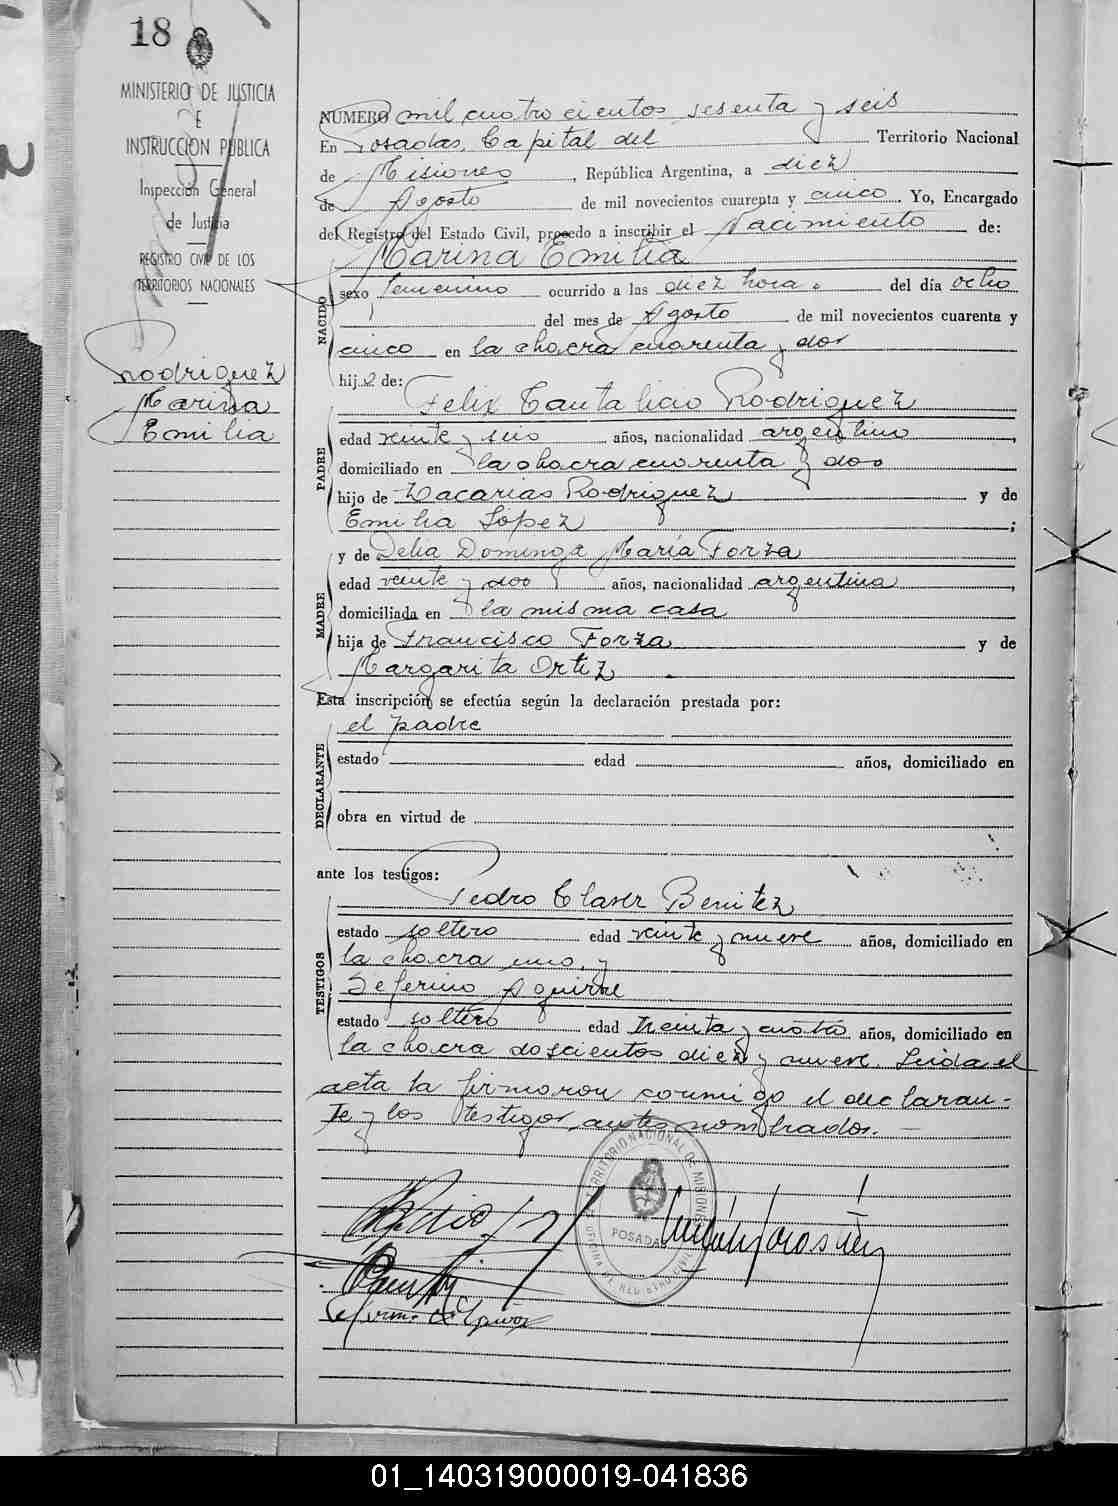 18
MINISTERIO DE JUSTICIA
E
INSTRUCCIÓN PÚBLICA
Inspección General
de Justicia
REGISTRO CIVIL DE LOS
TERRITORIOS NACIONALES
Rodriguez
Marina
Emilia
NÚMERO mil cuatrocientos sesenta y seis
En Posadas, Capital del Territorio Nacional
de Misiones, República Argentina, a diez
de Agosto de mil novecientos cuarenta y cinco. Yo, Encargado
del Registro del Estado Civil, procedo a inscribir el Nacimiento de:
Marina Emilia
NACIDO
sexo femenino ocurrido a las diez hora. del día ocho
del mes de Agosto de mil novecientos cuarenta y
cinco en la chacra cuarenta y dos
hija de:
Felix Tautalicio Rodriguez
PADRE
edad veinte y seis años, nacionalidad argentino,
domiciliado en la chacra cuarenta y dos
hijo de Zacarias Rodriguez y de
Emilia Lopez;
y de Delia Dominga María Forza
MADRE
edad veinte y dos años, nacionalidad argentina,
domiciliada en la misma casa
hija de Francisco Forza y de
Margarita Ortiz
Esta inscripción se efectúa según la declaración prestada por:
el padre
DECLARANTE
estado edad años, domiciliado en
obra en virtud de
ante los testigos:
Pedro Benitez
TESTIGOS
estado soltero edad veinte y nueve años, domiciliado en
la chacra uno, y
Seferino Aguirre
estado soltero edad treinta y cuatro años, domiciliado en
la chacra doscientos diez y nueve. Leida el
acta la firmaron conmigo el declaran-
te y los testigos antes nombrados.
TERRITORIO NACIONAL DE MISIONES
POSADAS
01_140319000019-041836